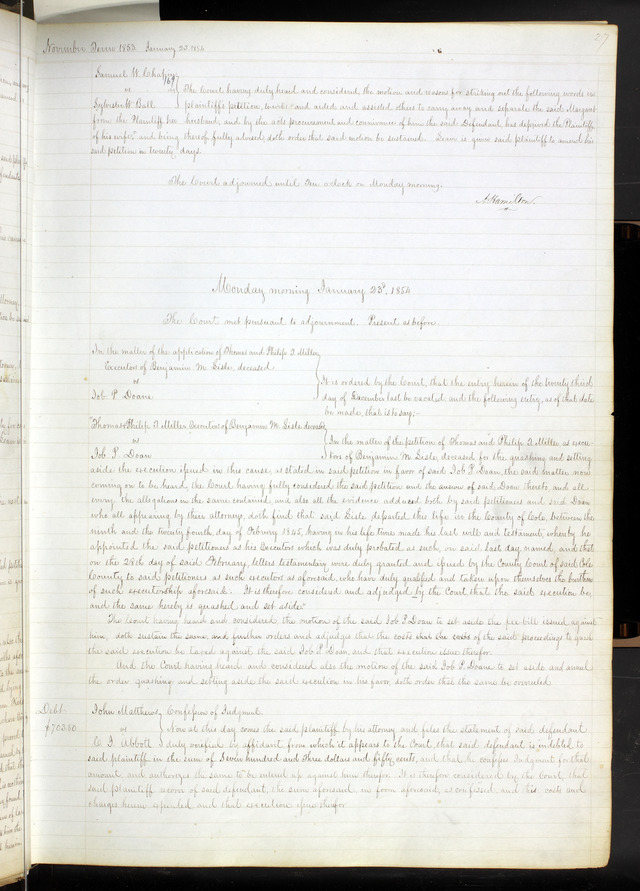 27
November Term 1853 January 22 1854
Samuel W. Chapp
169
vs The Court having duly heard and considered the motion and reasons for striking out the following words in
Sylvester W. Ball plaintiffs petition, to wit: and aided and assisted others to carry away and separate the said Margaret
from the Plaintiff her husband, and by the acts procurement and connivance of him the said Defendant has deprived the Plaintiff
of his wife" and being thereof fully advised doth order that said motion be sustained. Leave is given said plaintiff to amend his
said petition in twenty days.
The Court adjourned until Ten o'clock on Monday morning.
Hamilton.
Monday morning January 23d, 1854
The Court met pursuant to adjournment. Present as before.
In the matter of the application of Thomas and Philip T. Miller
Executors of Benjamin M. Lisle, deceased
vs It is ordered by the Court, that the entry herein of the twenty third
Job. P. Doane day of December last be vacated and the following entry, as of that date
be made, that is to say;-
"Thomas & Philip T. Miller Executors of Benjamin M. Lisle deceased
vs In the matter of the petition of Thomas and Philip T. Miller, as execu-
Job P. Doan tors of Benjamin M. Lisle, deceased for the quashing and setting
aside the execution issued in this cause, as stated in said petition in favor of said Job P. Doan, the said matter now
coming on to be heard, the Court having fully considered the said petition and the answer of said Doan thereto and all
every the allegations in the same contained, and also all the evidence adduced both by said petitioners and said Doan
who all appearing by their attorneys, doth find that said Lisle departed this life in the County of Cole, between the
ninth and the twenty fourth day of February 1845, having in his life time made his last will and testament, whereby he
appointed the said petitioners as his Executors which was duly probated as such, on said last day named, and that
on the 28th day of said February, letters testamentary were duly granted and issued by the County Court of said Cole
County to said petitioners as such executors as aforesaid, who have duly qualified and taken upon themselves the burthen
of such executorship aforesaid. It is therefore considered and adjudged by the Court that the said execution be,
and the same hereby is quashed and set aside."
The Court having heard and considered the motion of the said Job P. Doan to set aside the fee bill issued against
him, doth sustain the same, and further orders and adjudge that the costs of the said proceedings to quash
the said execution be taxed against the said Job P. Doan and that execution issue therefor.
And the Court having heard and considered also the motion of the said Job P. Doane to set aside and annul
the order quashing and setting aside the said execution in his favor, doth order that the same be overruled
Debt John Matthews Confession of Judgment.
$703.50 vs Now at this day comes the said plaintiff by his attorney and files the statement of said defendant
Abbott duly verified by affidavit from which it appears to the Court, that said defendant is indebted to
said plaintiff in the sum of Seven hundred and Three dollars and fifty cents, and that he confesses Judgment for that
amount and authorizes the same to be entered up against him therefor. It is therefore considered by the Court, that
said plaintiff recover of said defendant, the sum aforesaid, in form aforesaid, as confessed, and his costs and
charges herein expended and that execution issue therefor